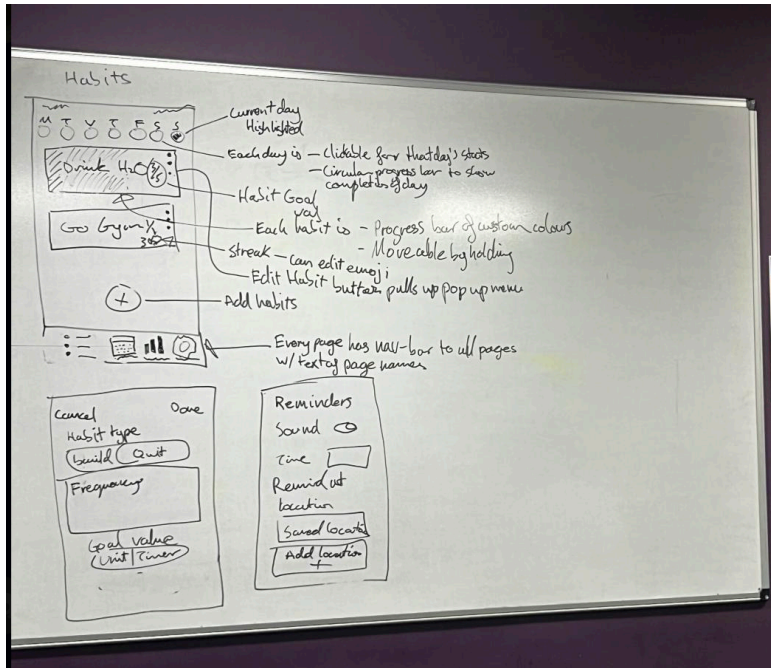 Habits
M T V T F S S
Current day
Highlighted
Each day is – Clickable for that day's stats
– Circular progress bar to show
completion of day
Drink H2O
Habit Goal
val
Each habit is – Progress bar of custom colours
– Moveable by holding
Go Gym
Streak – Can edit emoji
Edit Habit button pulls up pop up menu
+
Add habits
Every page has nav-bar to all pages
w/ text of page names
Cancel Done
Habit type
build Quit
Frequency
Goal value
Unit | Timer
Reminders
Sound
Time
Remind at
location
Saved location
Add location
+